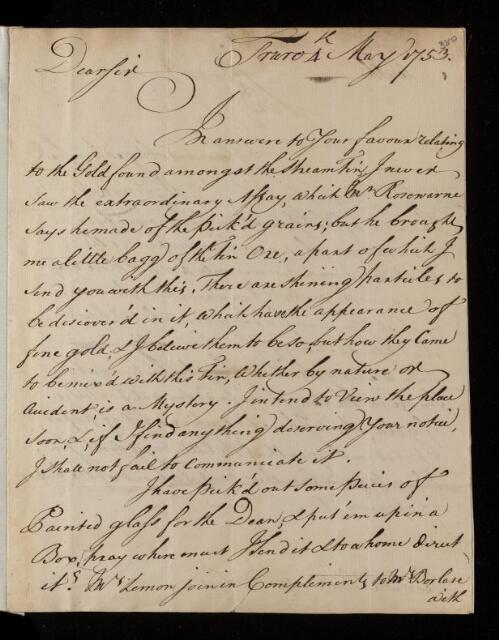 Truro 4th May 1753.
Dear Sir
In answere to Your favour relating
to the Gold found amongst the Stream Tin, I never
saw the extraordinary Assay, which Mr Rosewarne
says he made of the Pick'd grains; but he brought
me a little bagg of the Tin Ore, a part of which I
send you with this. There are shining particles to
be discover'd in it, which have the appearance of
fine gold, & I beleive them to be so, but how they Came
to be mix'd with this Tin, Whither by nature or
accident, is a Mystery. I intend to View the place
soon, &, if I find any thing deserving Your notice,
I shall not fail to Communicate it.
I have Pick'd out some Pieces of
Painted glass for the Dean, & put 'em up in a
Box, pray where must I send it & to whome direct
it? Mrs Lemon joins in Complements to Mrs Borlase
with